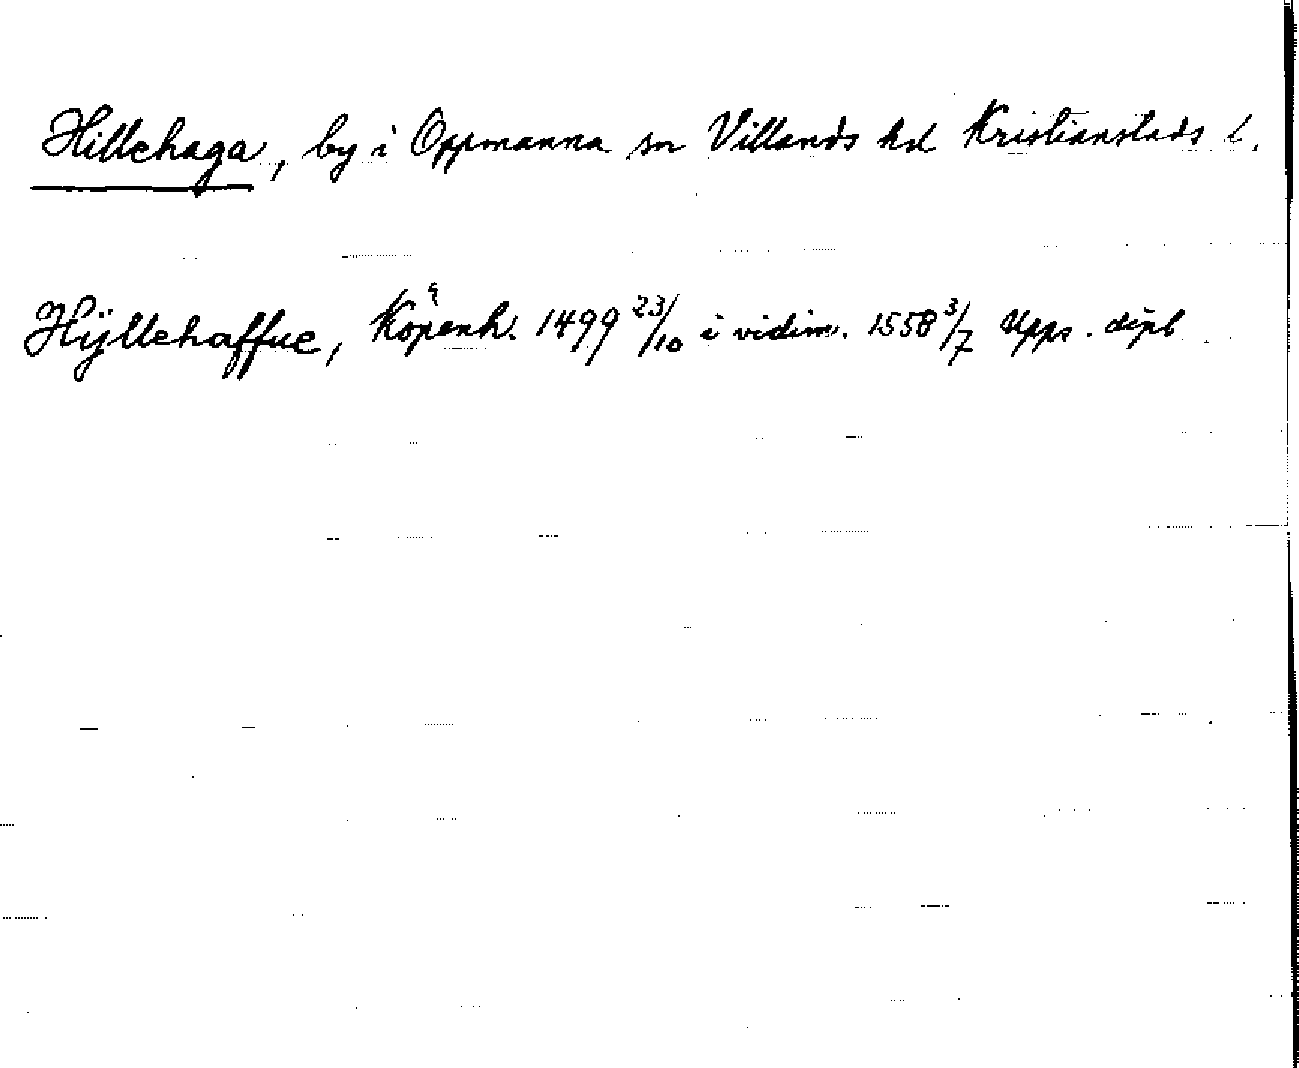 Hillehaga, by i Oppmanna sn Villands hd Kristianstads l.
Hÿllehaffue, Köpenh. 1499 23/10 i vidim. 1558 3/7 Upps. dipl